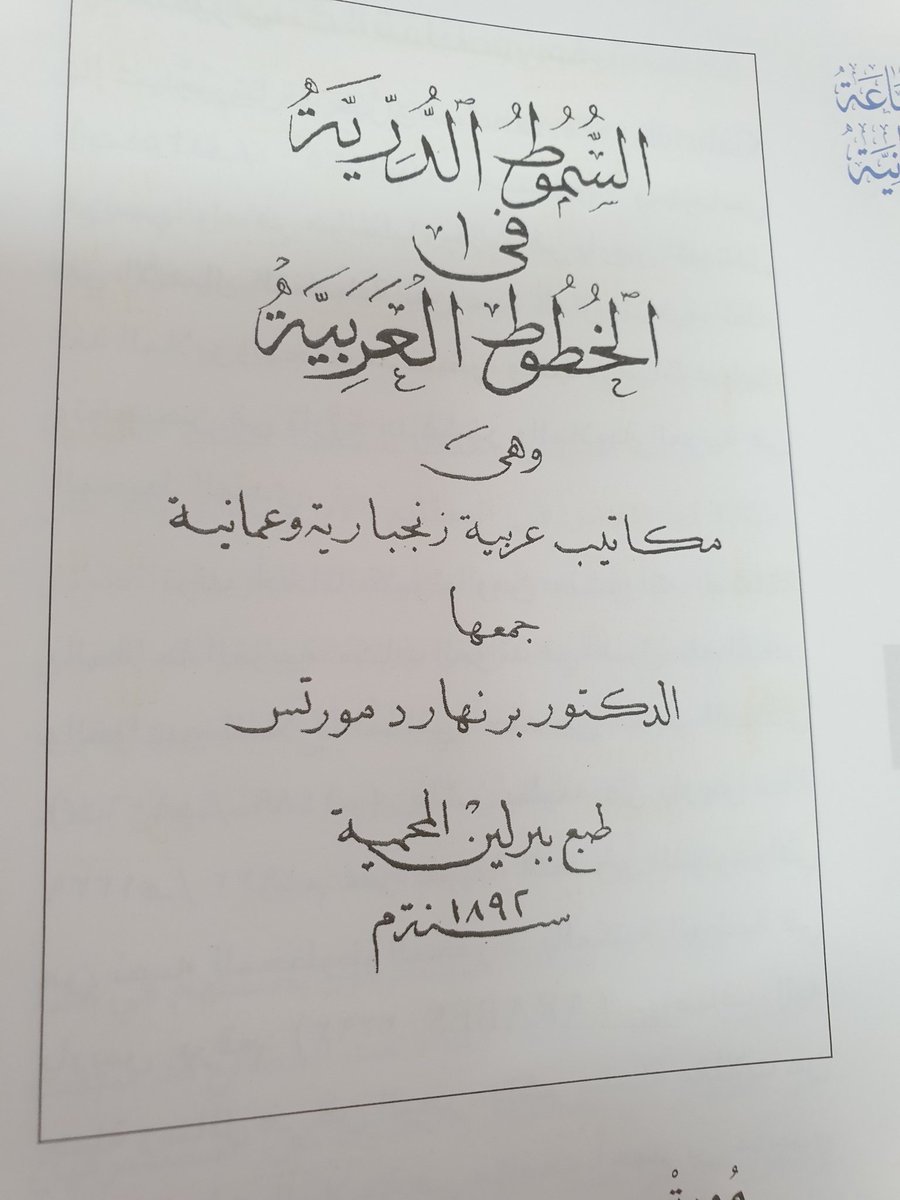 السُّمُوطُ الدُّرِّيَّةُ
فى
الخُطُوطِ العَرَبِيَّةُ
وهى
مكاتيب عربية زنجبارية وعمانية
جمعها
الدكتور برنهارد مورتس
طبع ببرلين المحمية
سنة ١٨٩٢ م